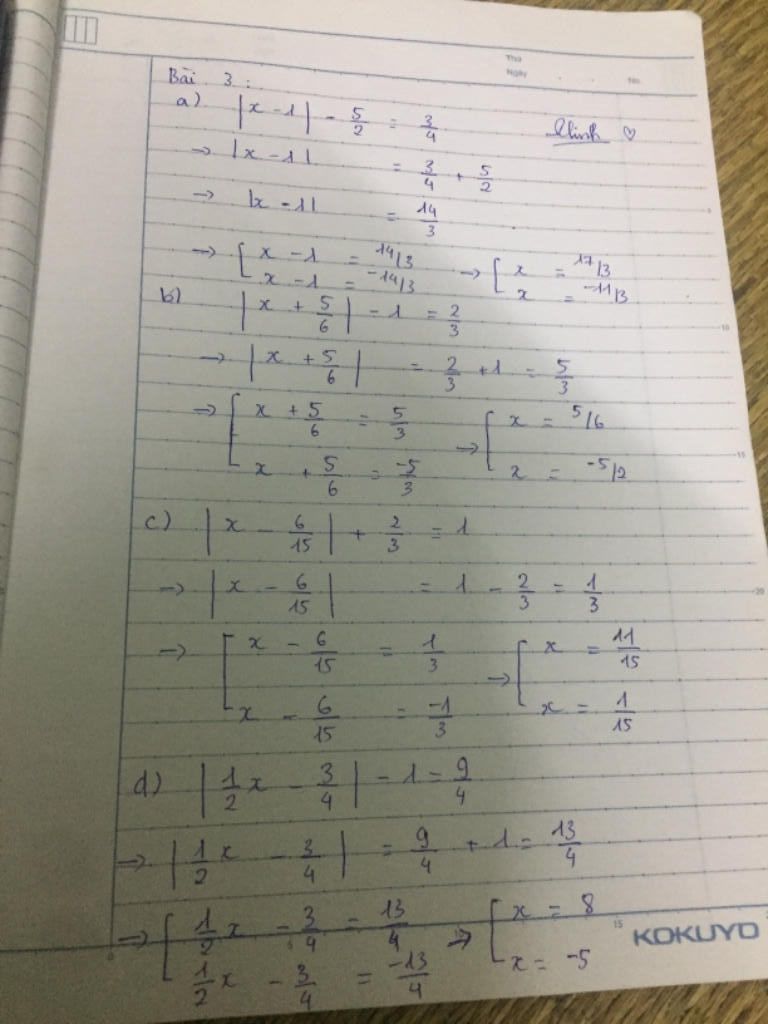 Thứ
Ngày No.
Bài 3:
a) |x - 1| - 5/2 = 3/4 ♡
→ |x - 1| = 3/4 + 5/2
→ |x - 1| = 14/3
→ [ x - 1 = 14/3 → [ x = 17/3
x - 1 = -14/3 x = -11/3
b) |x + 5/6| - 1 = 2/3
→ |x + 5/6| = 2/3 + 1 = 5/3
→ [ x + 5/6 = 5/3 → [ x = 5/6
x + 5/6 = -5/3 x = -5/2
c) |x - 6/15| + 2/3 = 1
→ |x - 6/15| = 1 - 2/3 = 1/3
→ [ x - 6/15 = 1/3 → [ x = 11/15
x - 6/15 = -1/3 x = 1/15
d) |1/2x - 3/4| - 1 = 9/4
→ |1/2x - 3/4| = 9/4 + 1 = 13/4
→ [ 1/2x - 3/4 = 13/4 → [ x = 8
1/2x - 3/4 = -13/4 x = -5
KOKUYO
5
10
15
20
15